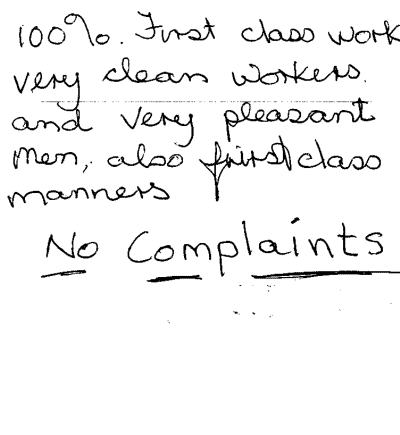 100%. First class work
very clean workers.
and very pleasant
men, also first class
manners
No Complaints